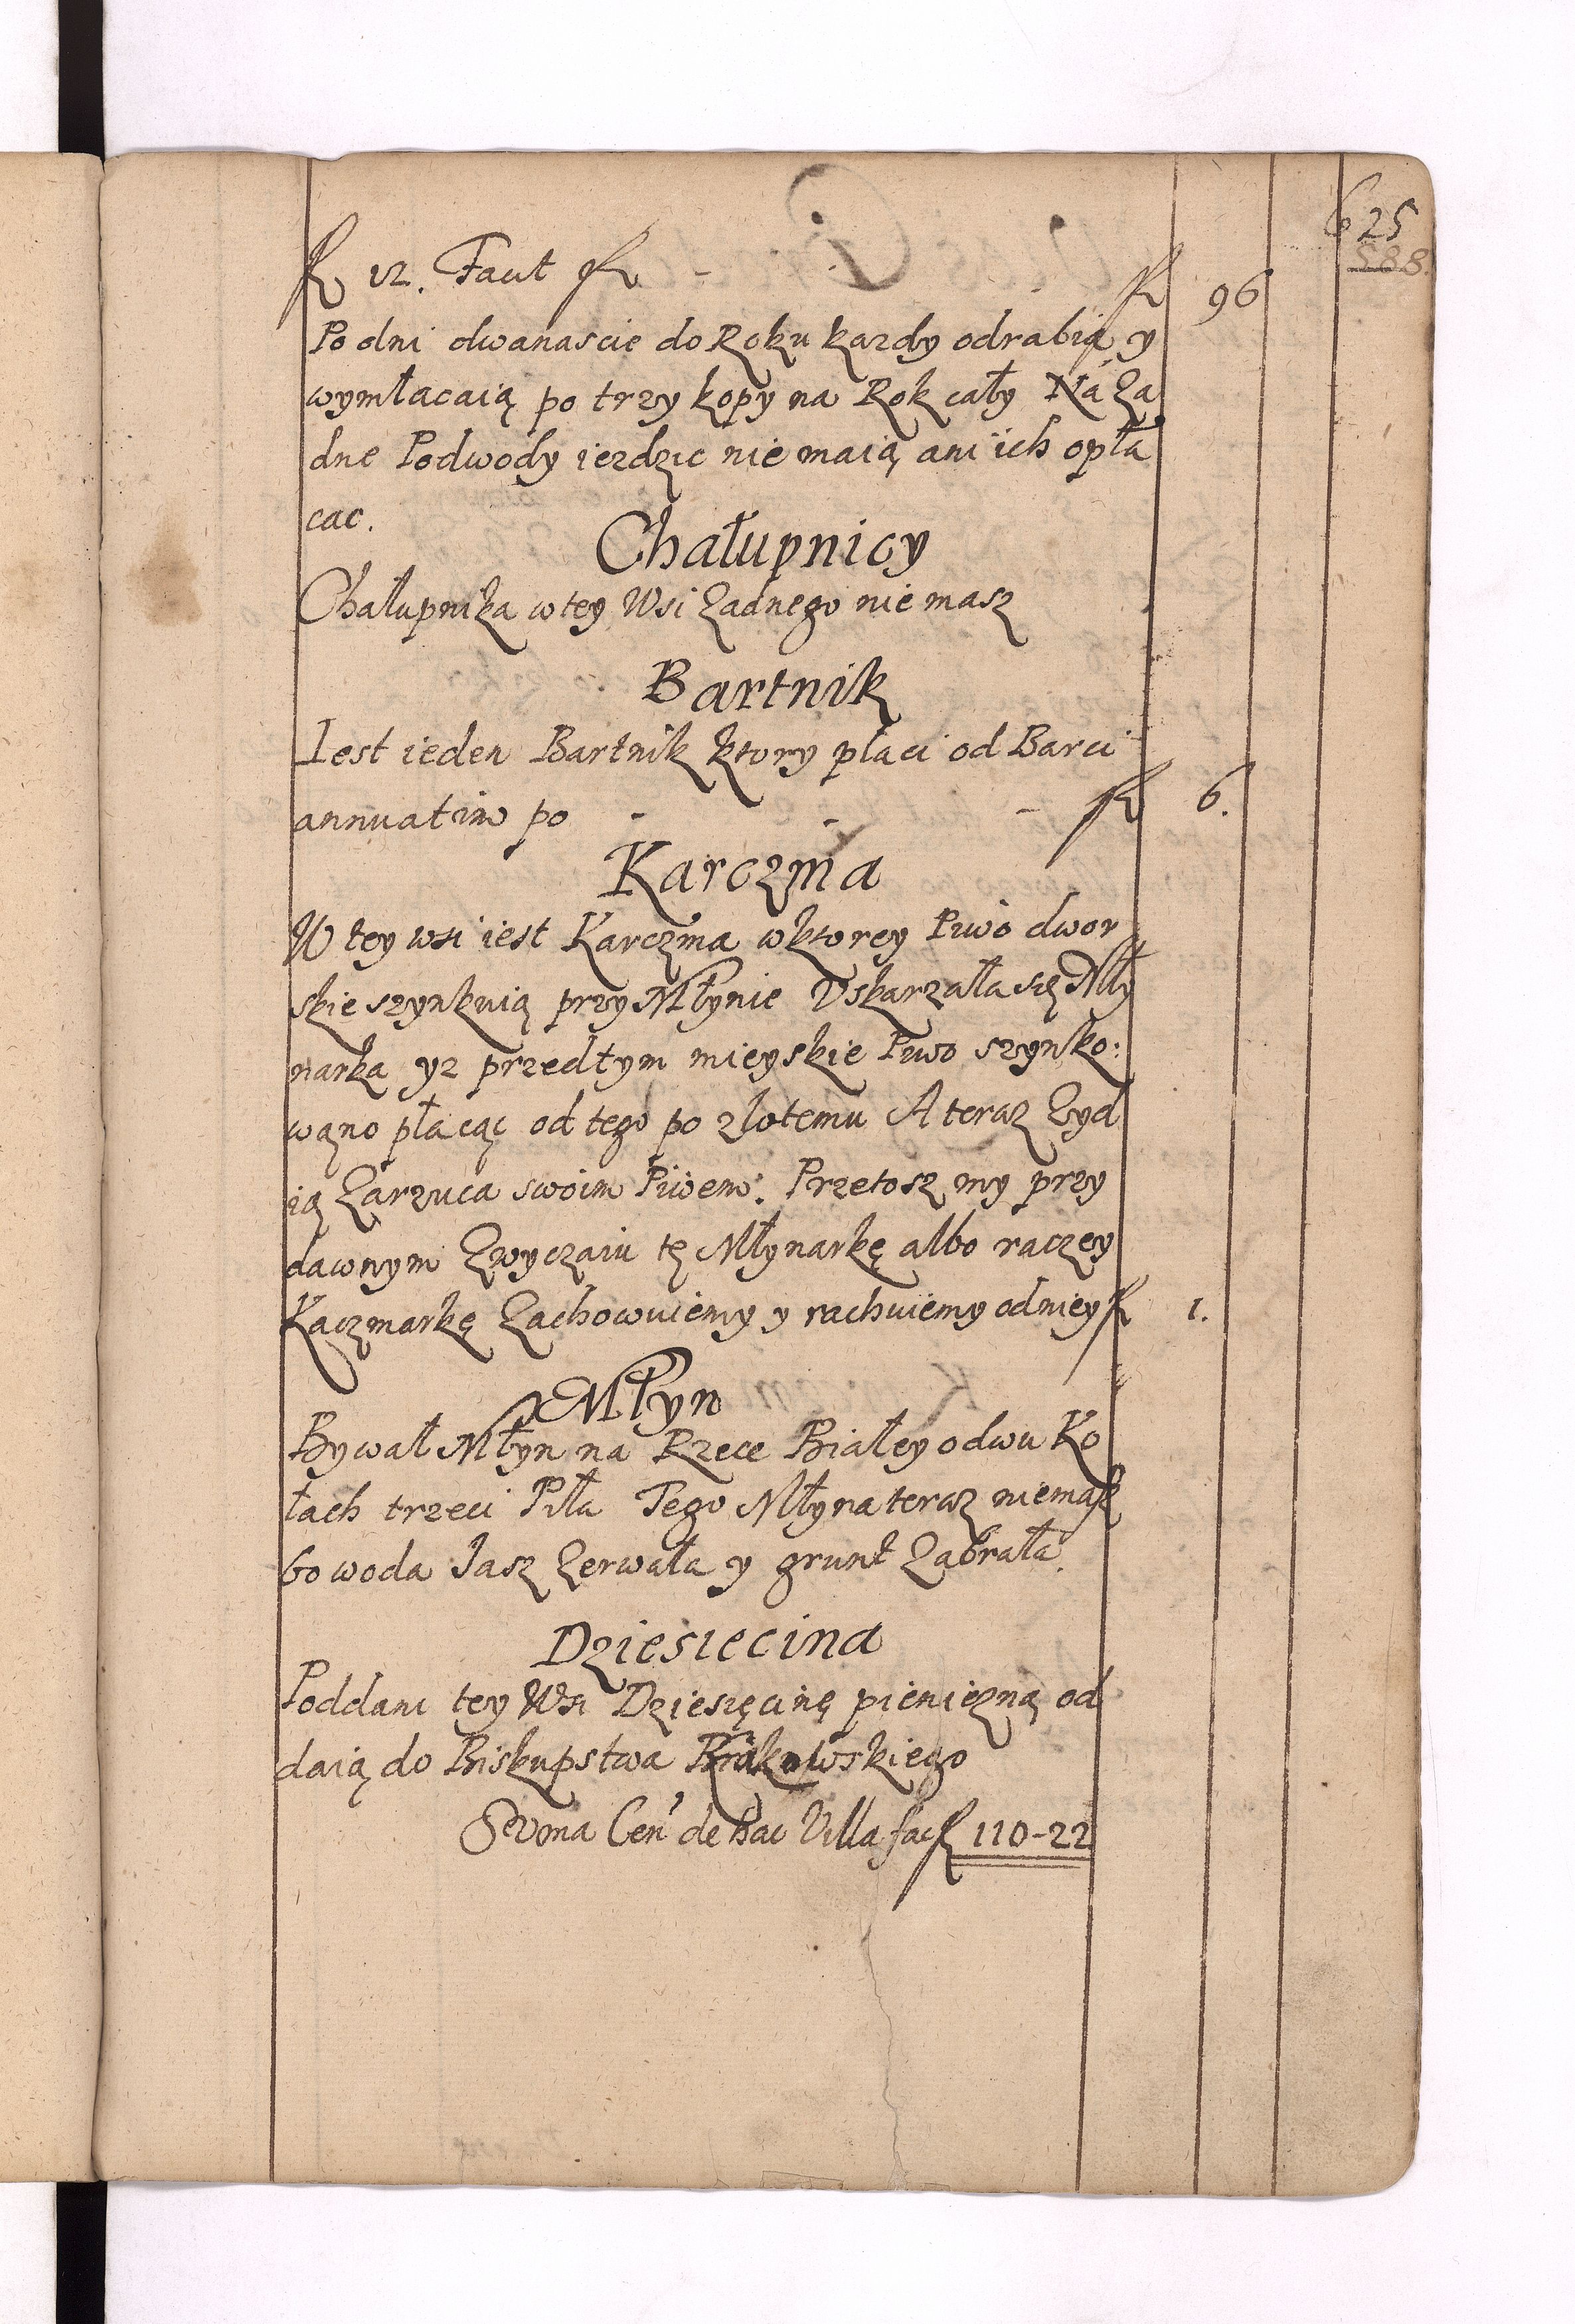 625
588.
fl 12. Facit fl - fl 96
Po dni dwanascie do Roku kazdy odrabia y
wymłacaią po trzy kopy na Rok cały Na za
dne Podwody iezdzic nie maią ani ich opła
cac.
Chałupnicy
Chałupnika w tey Wsi zadnego nie masz
Bartnik
Iest ieden Bartnik ktory płaci od Barci
annuatim po - - - fl 6.
Karczma
W tey wsi iest Karczma w ktorey Piwo dwor
skie szynkuią przy Młynie Vskarzała się Mły
narka yz przedtym mieyskie Piwo szynko:
wano płacąc od tego po złotemu A teraz Zyd
ią zarzuca swoim Piwem. Przetosz my przy
dawnym Zwyczaiu tę Młynarkę albo raczey
Kaczmarkę zachowuiemy y rachuiemy od niey fl 1.
Młyn
Bywał Młyn na Rzece Białey o dwu Ko
łach trzeci Piła Tego Młyna teraz niemasz
bo woda Jasz zerwała y grunt zabrała.
Dziesiecina
Poddani tey Wsi Dziesięcinę pieniezną od
daią do Biskupstwa Krakowskiego
Suma Cen' de hac Villa fac fl 110-22